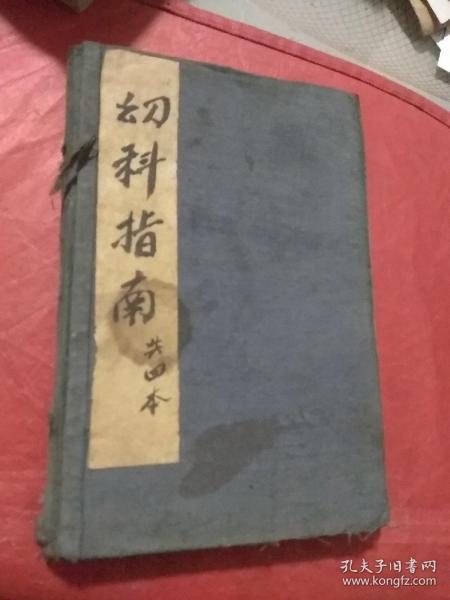 幼科指南
共四本
孔夫子旧书网
www.kongfz.com